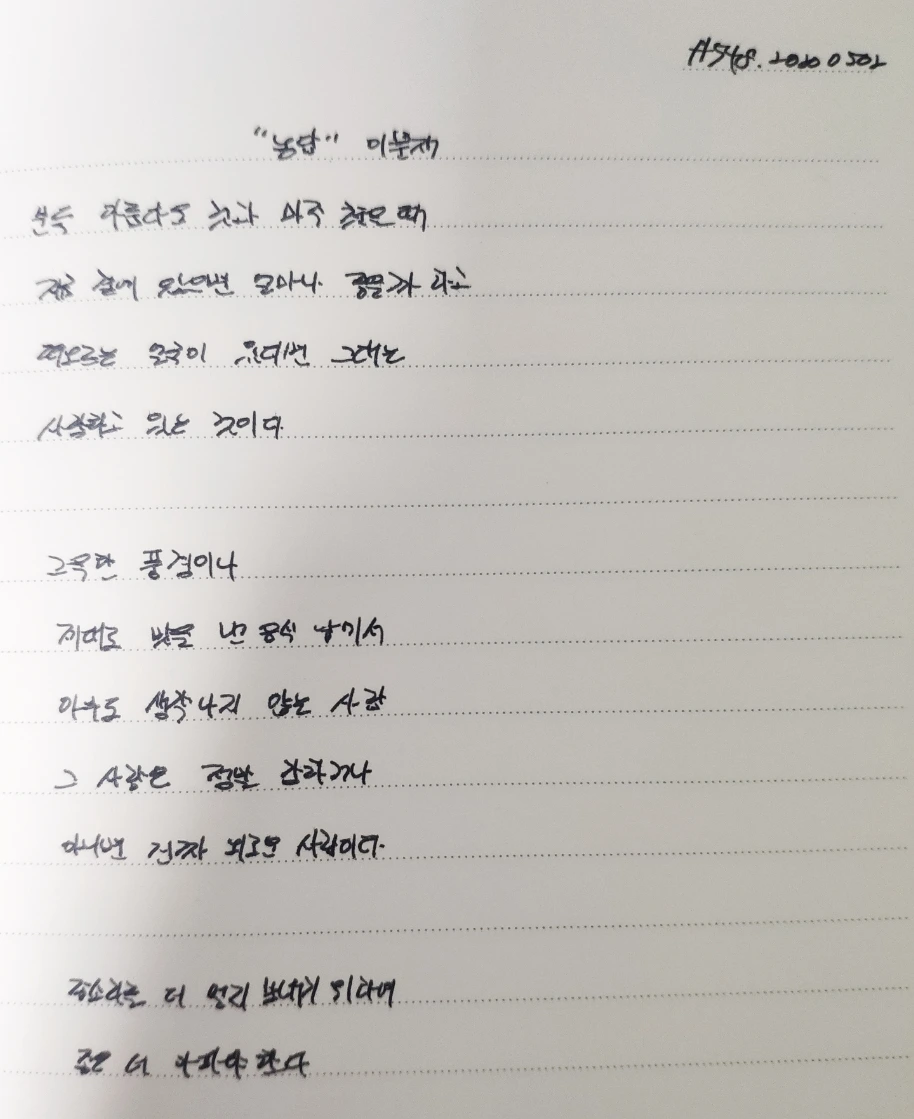 20200502
"농담" 이문재
문득 아름다운 것과 마주쳤을 때
지금 곁에 있으면 얼마나 좋을까 하고
떠오르는 얼굴이 있다면 그대는
사랑하고 있는 것이다
그윽한 풍경이나
제대로 맛을 낸 음식 앞에서
아무도 생각나지 않는 사람
그 사람은 정말 강하거나
아니면 진짜 외로운 사람이다.
종소리를 더 멀리 보내기 위하여
종은 더 아파야 한다